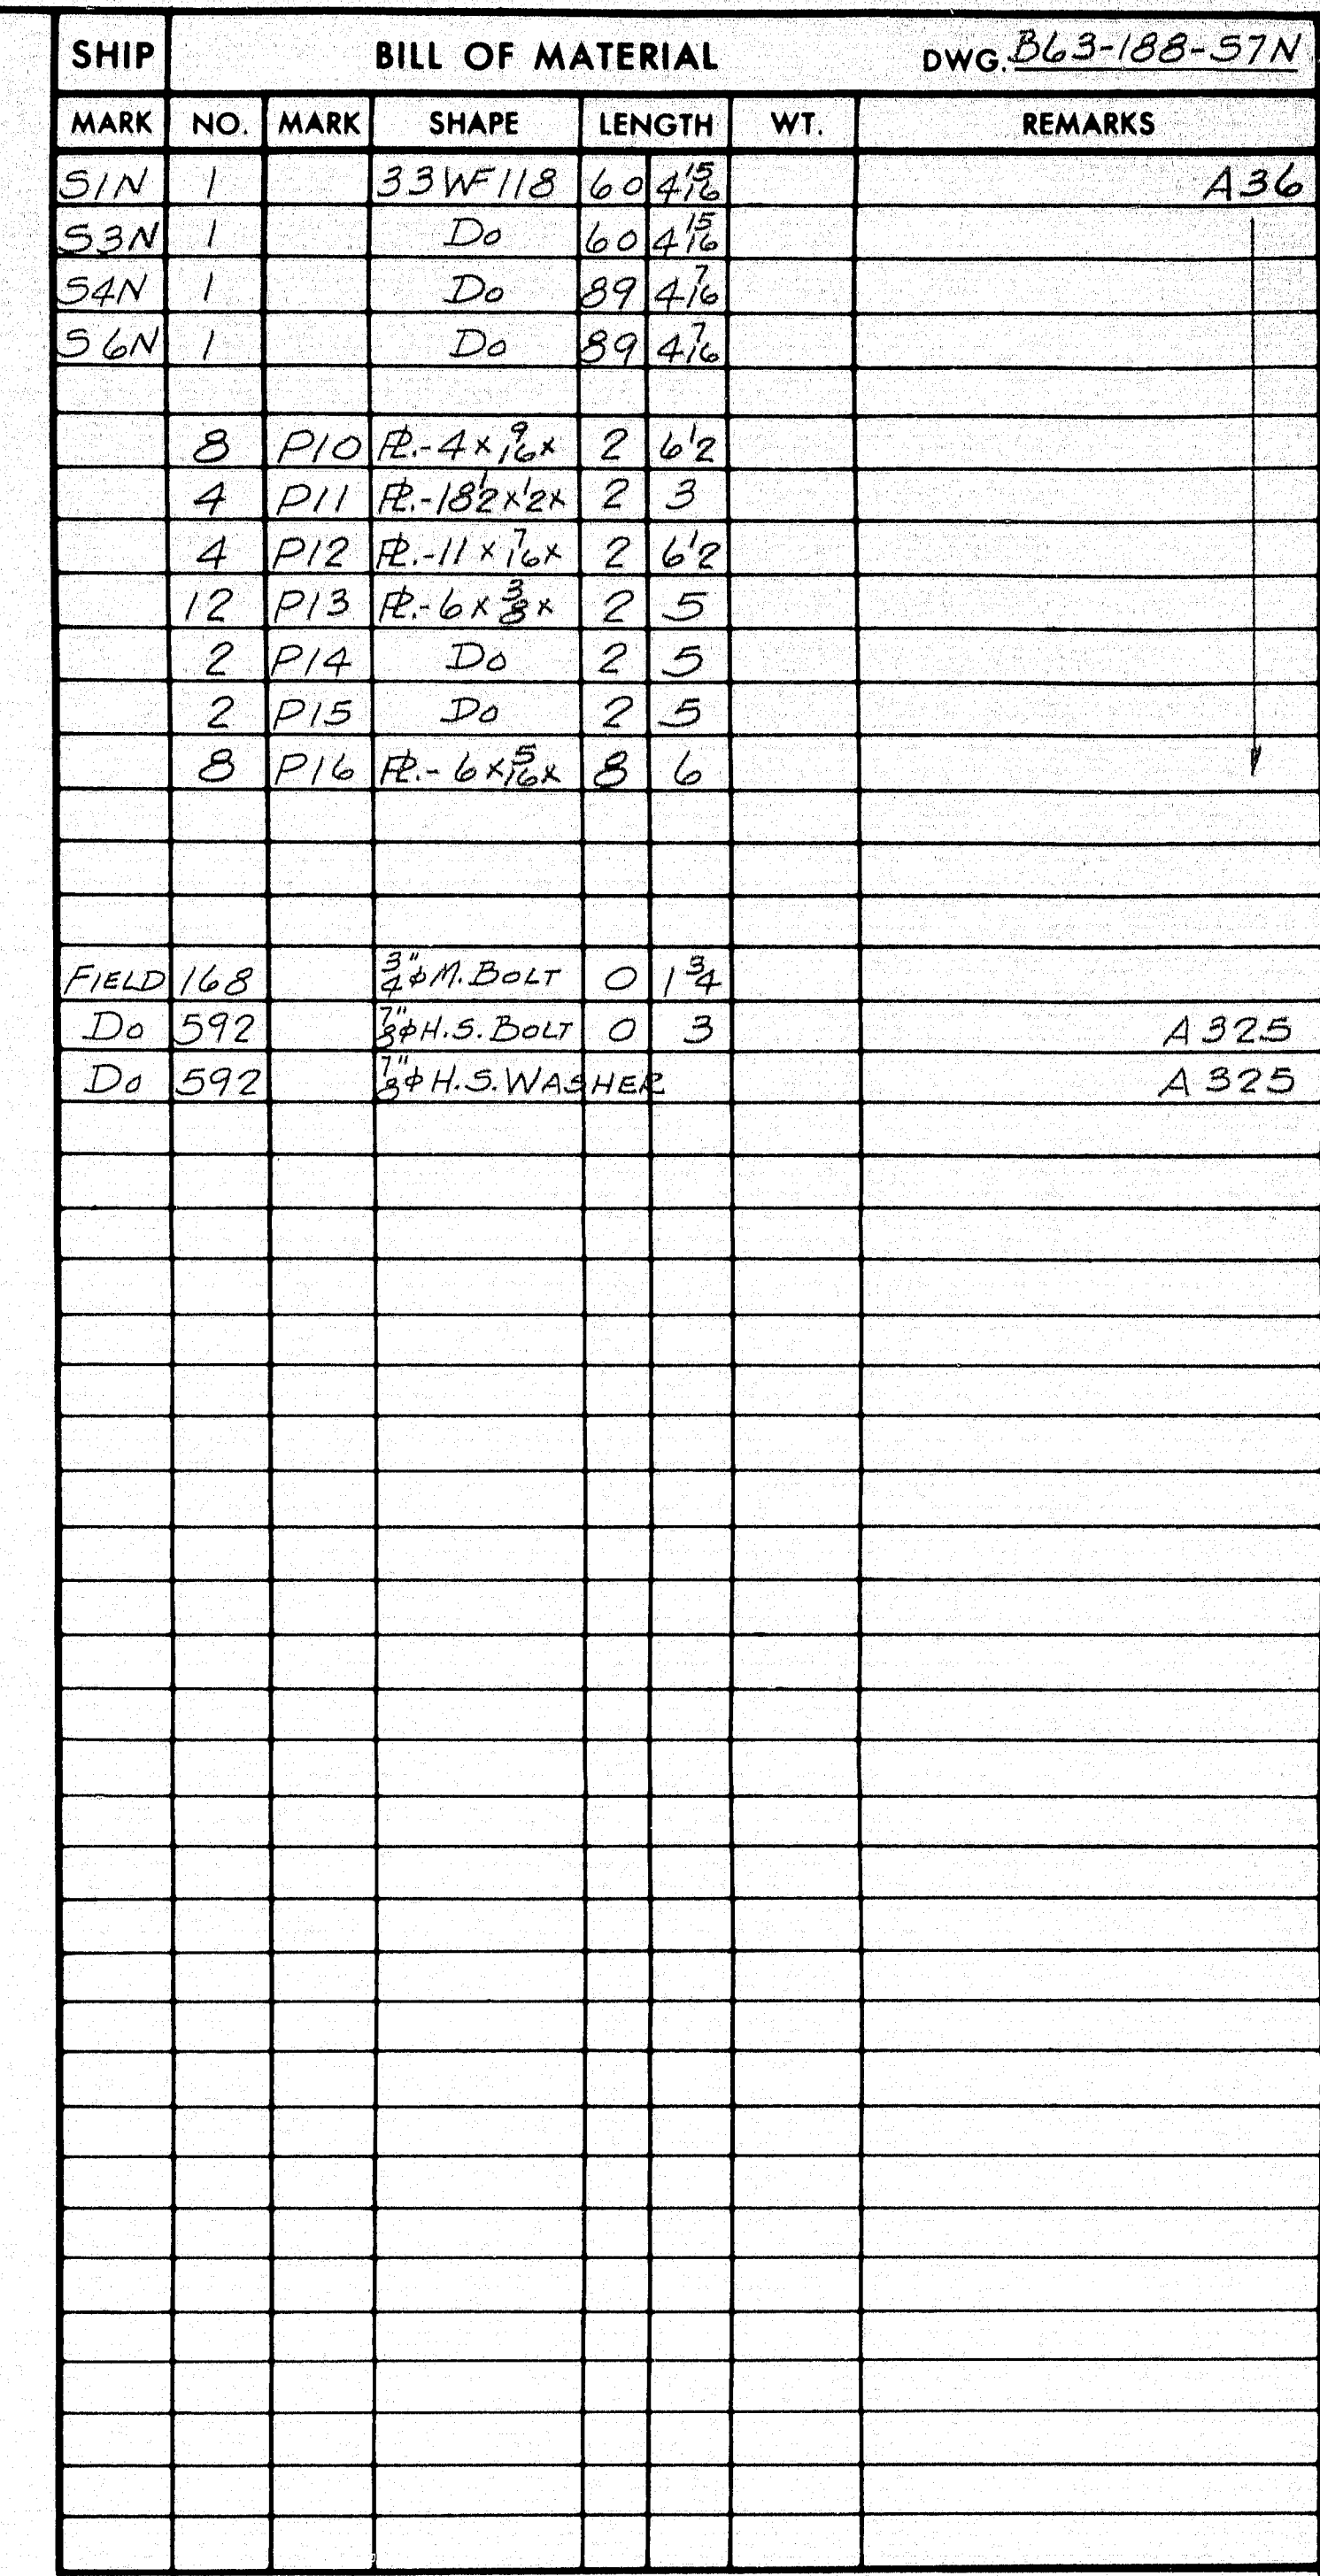 SHIP BILL OF MATERIAL DWG. B63-188-S7N
MARK NO. MARK SHAPE LENGTH WT. REMARKS
S1N 1 33WF118 60 4 15/16 A36
S3N 1 Do 60 4 15/16
S4N 1 Do 89 4 7/16
S6N 1 Do 89 4 7/16
8 P10 PL.-4 x 9/16 x 2 6 1/2
4 P11 PL.-18 1/2 x 1/2 x 2 3
4 P12 PL.-11 x 7/16 x 2 6 1/2
12 P13 PL.-6 x 3/8 x 2 5
2 P14 Do 2 5
2 P15 Do 2 5
8 P16 PL.-6 x 5/16 x 8 6
FIELD 168 3/4"φ M. BOLT 0 1 3/4
Do 592 7/8"φ H.S. BOLT 0 3 A325
Do 592 7/8"φ H.S. WASHER A325